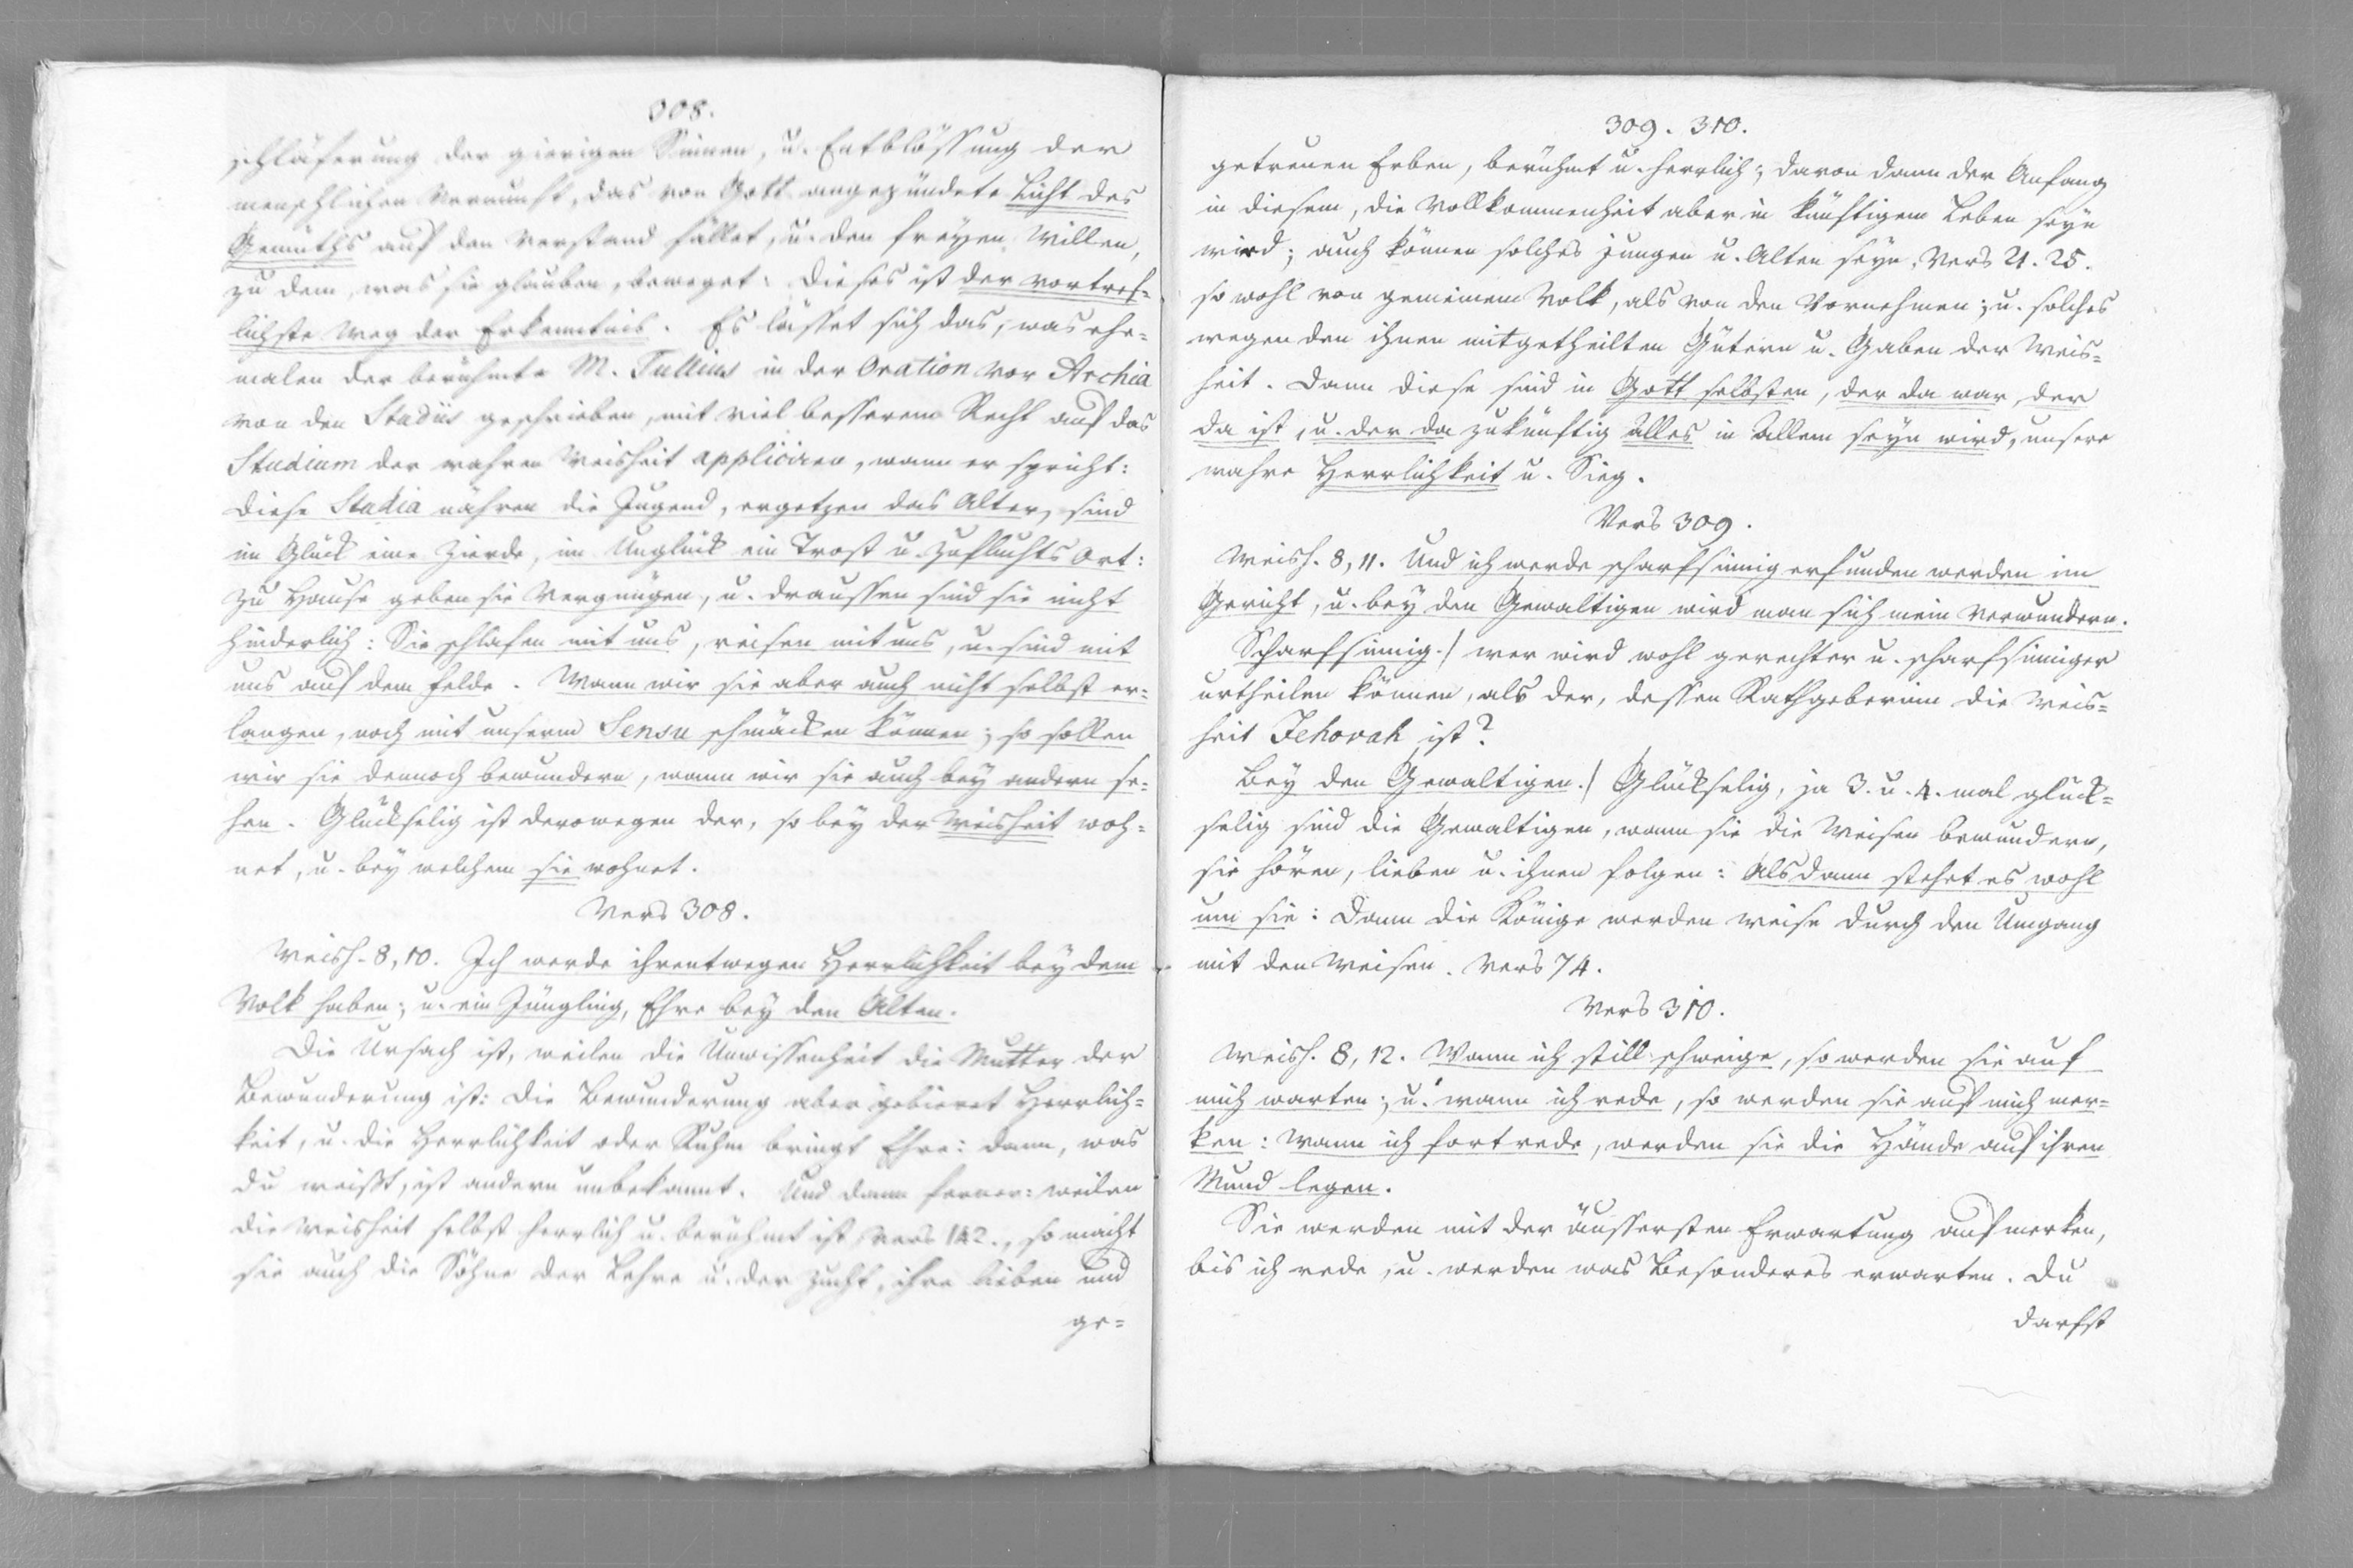 308.
schläferung der gierigen Sinnen, u. Entblössung der
menschlichen Vernunft, das von Gott angezündete Licht des
Gemüths auf den Verstand fället, u. den freyen Willen,
zu dem, was sie glauben, beweget: dieses ist der vortref=
lichste Weg der Erkenntnis. Es lässet sich das, was ehe=
malen der berühmte M. Tullius in der Oration vor Archia
von den Studiis geschrieben, mit viel besserem Recht auf das
Studium der wahren Weisheit appliciren, wann er spricht:
Diese Studia nähren die Jugend, ergetzen das Alter, sind
im Glück eine Zierde, im Unglück ein Trost u. Zufluchts Ort:
zu Hause geben sie Vergnügen, u. draussen sind sie nicht
hinderlich: Sie schlafen mit uns, reisen mit uns, u. sind mit
uns auf dem Felde. Wann wir sie aber auch nicht selbst er=
langen, noch mit unserm Sensu schmäcken können; so sollen
wir sie dennoch bewundern, wann wir sie auch bey andern se=
hen. Glückselig ist derowegen der, so bey der Weisheit woh=
net, u. bey welchem sie wohnet.
Vers 308.
Weish. 8, 10. Ich werde ihrentwegen Herrlichkeit bey dem
Volk haben; u. ein Jüngling, Ehre bey den Alten.
Die Ursach ist, weilen die Unwissenheit die Mutter der
Bewunderung ist: Die Bewunderung aber gebieret Herrlich=
keit, u. die Herrlichkeit oder Ruhm bringt Ehre: dann, was
du weißt, ist andern unbekannt. Und dann ferner: weilen
die Weisheit selbst herrlich u. berühmt ist Vers 142., so macht
sie auch die Söhne der Lehre u. der Zucht, ihre lieben und
ge=
309. 310.
getreuen Erben, berühmt u. herrlich; davon dann der Anfang
in diesem, die Vollkommenheit aber in künftigem Leben seyn
wird; auch können solches Jungen u. Alten seyn, Vers 21. 25.
so wohl von gemeinem Volk, als von den Vornehmen; u. solches
wegen den ihnen mitgetheilten Gütern u. Gaben der Weis=
heit. Dann diese sind in Gott selbsten, der da war, der
da ist, u. der da zukünftig Alles in Allem seyn wird, unsere
wahre Herrlichkeit u. Sieg.
Vers 309.
Weish. 8, 11. Und ich werde scharfsinnig erfunden werden im
Gericht, u. bey den Gewaltigen wird man sich mein verwundern.
Scharfsinnig./ wer wird wohl gerechter u. scharfsinniger
urtheilen können, als der, dessen Rathgeberinn die Weis=
heit Jehovah ist?
Bey den Gewaltigen./ Glückselig, ja 3. u. 4. mal glück=
selig sind die Gewaltigen, wann sie die Weisen bewundern,
sie hören, lieben u. ihnen folgen: Alsdann stehet es wohl
um sie: Dann die Könige werden weise durch den Umgang
mit den Weisen. Vers 74.
Vers 310.
Weish. 8, 12. Wann ich still schweige, so werden sie auf
mich warten; u. wann ich rede, so werden sie auf mich mer=
ken: wann ich fortrede, werden sie die Hände auf ihren
Mund legen.
Sie werden mit der äussersten Erwartung aufmerken,
bis ich rede, u. werden was Besonderes erwarten. Du
darfst